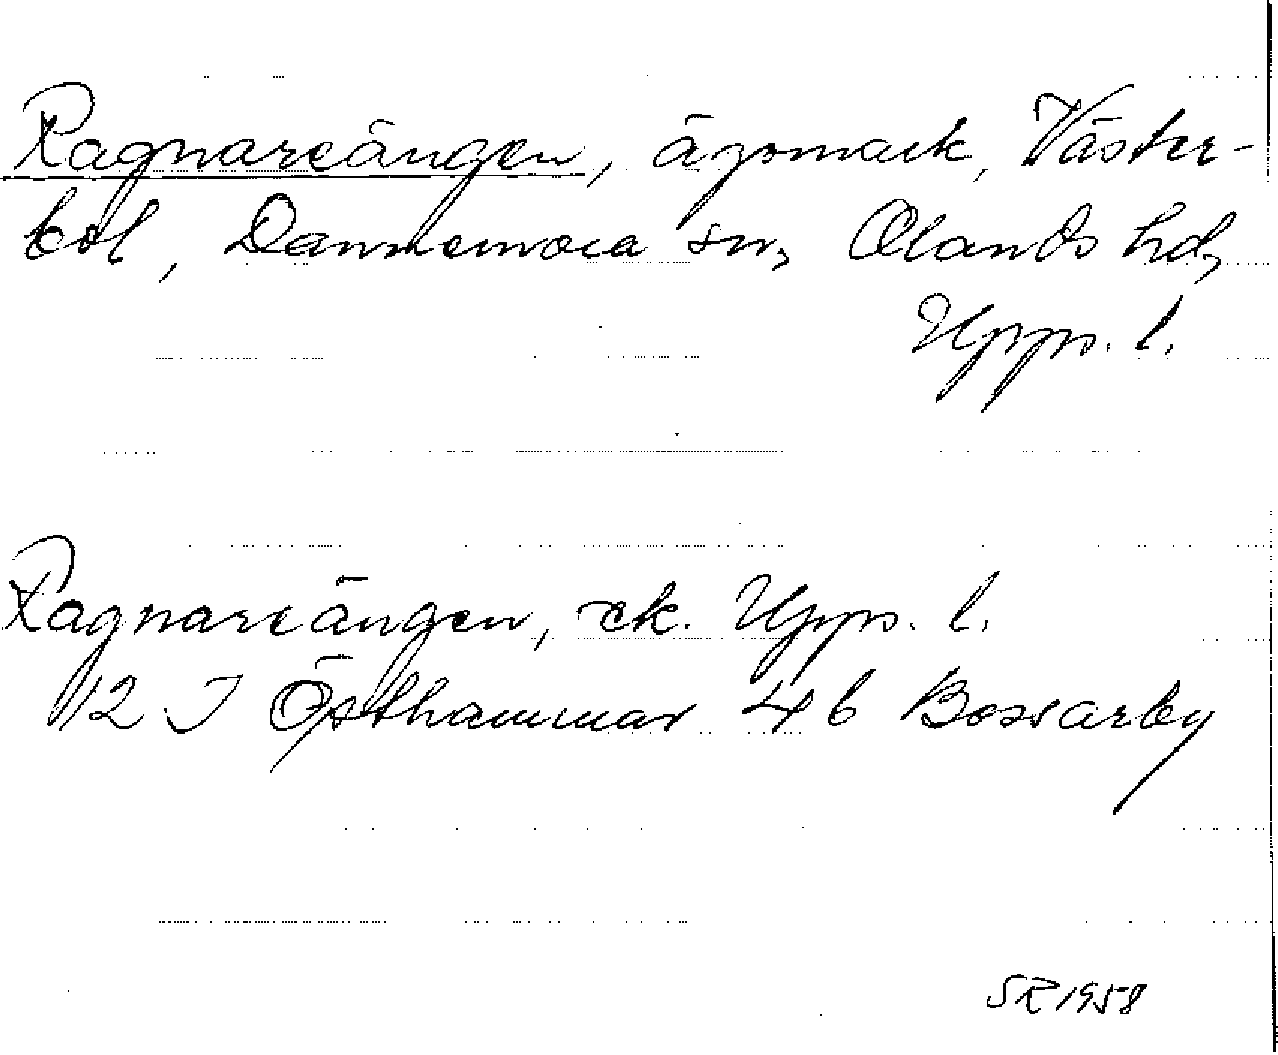 Ragnarsängen, ägomark, Väster-
bol, Dannemora sn, Olands hd,
Upps. l.
Ragnarsängen, ek. Upps. l.
12 I Östhammar 4 b Bossarby
SR 1958